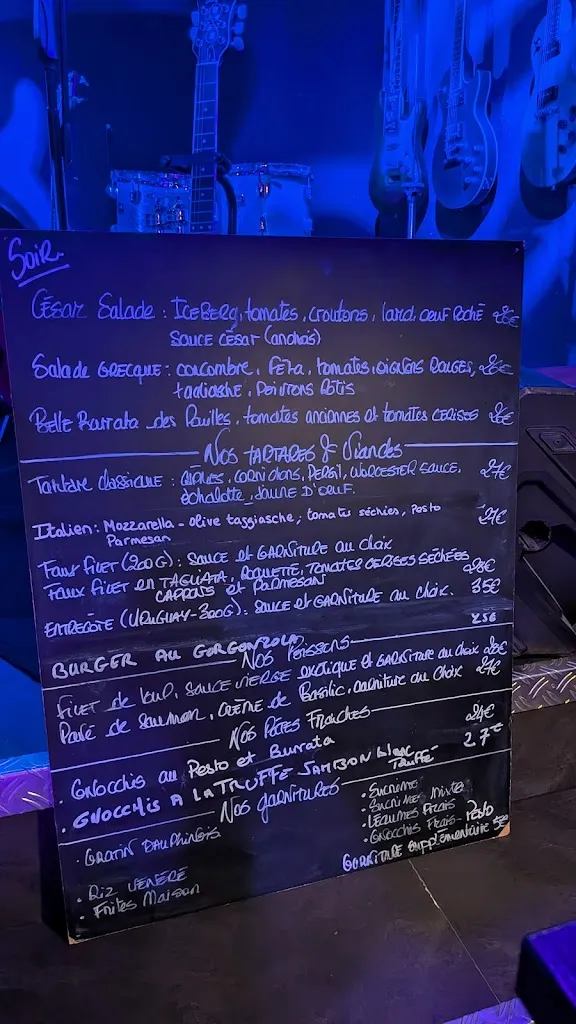 Soir.
César Salade : Iceberg, tomates, croutons, lard, oeuf Poché
Sauce César (anchois)
Salade Grecque : concombre, Féta, tomates, oignons Rouges,
taggiasche, Poivrons Rôtis
Belle Burrata des Pouilles, tomates anciennes et tomates cerises
Nos Tartares & Viandes
Tartare Classique : Câpres, Cornichons, Persil, Worcester Sauce, 27€
échalotte, Jaune D'oeuf.
Italien : Mozzarella - olive taggiasche, tomate séchies, Pesto 27€
Parmesan
Faux Filet (200G) : Sauce et Garniture au choix
Faux Filet en Tagliata, Roquette, Tomates Cerises Séchées
Caprons et Parmesan 28€
Entrecôte (Uruguay-300G) : Sauce et Garniture au choix. 35€
Burger au Gorgonzola 25€
Nos Poissons
Filet de Loup, Sauce Vierge exotique et Garniture au choix
Pavé de Saumon, Crème de Basilic, Garniture au choix 27€
Nos Pâtes Fraiches
. Gnocchis au Pesto et Burrata 24€
. Gnocchis a la Truffe Jambon blanc Truffé 27€
Nos garnitures
. Gratin Dauphinois
. Riz Vénéré
. Frites Maison
. Sucrine
. Légumes Frais
. Gnocchis Frais - Pesto
Garniture supplémentaire